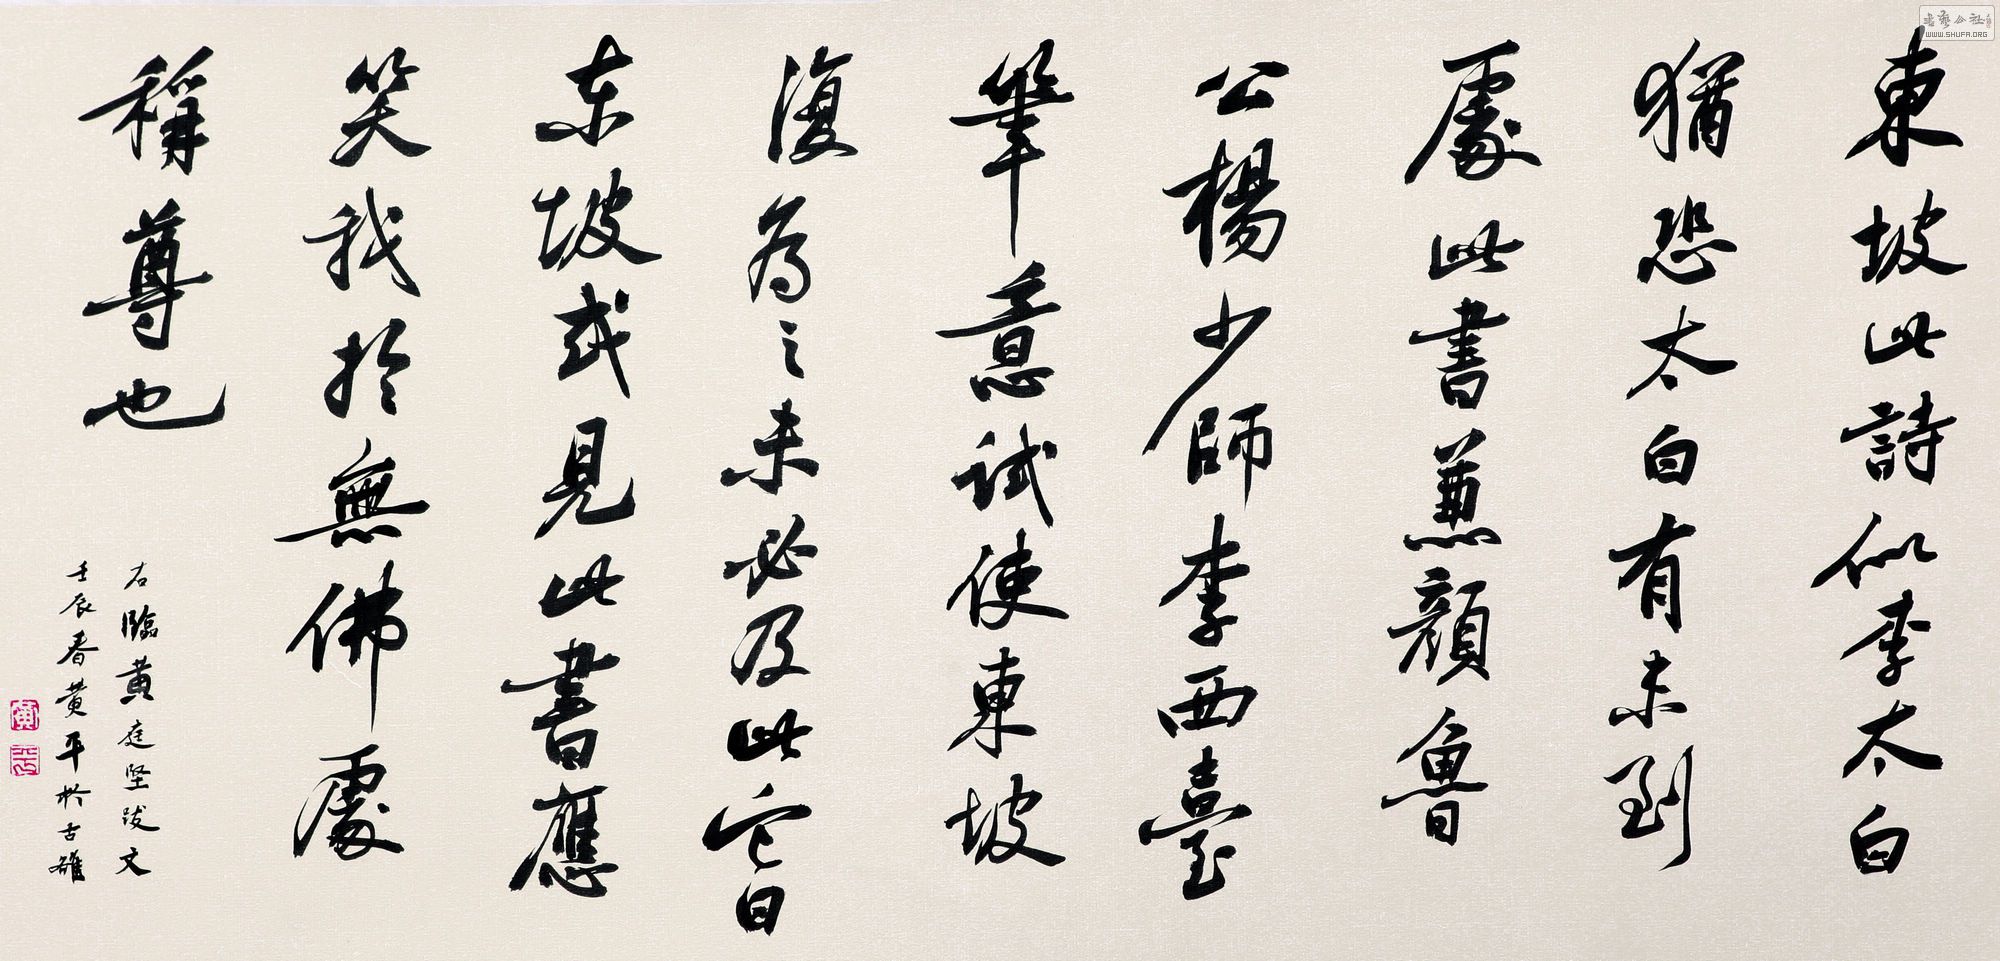 東坡此詩似李太白
猶恐太白有未到
處此書兼顏魯
公楊少師李西臺
筆意試使東坡
復為之未必及此它日
东坡或見此書應
笑我於無佛處
稱尊也
右臨黃庭坚跋文
壬辰春黃平於古雒
黃
平
书艺公社
WWW.SHUFA.ORG